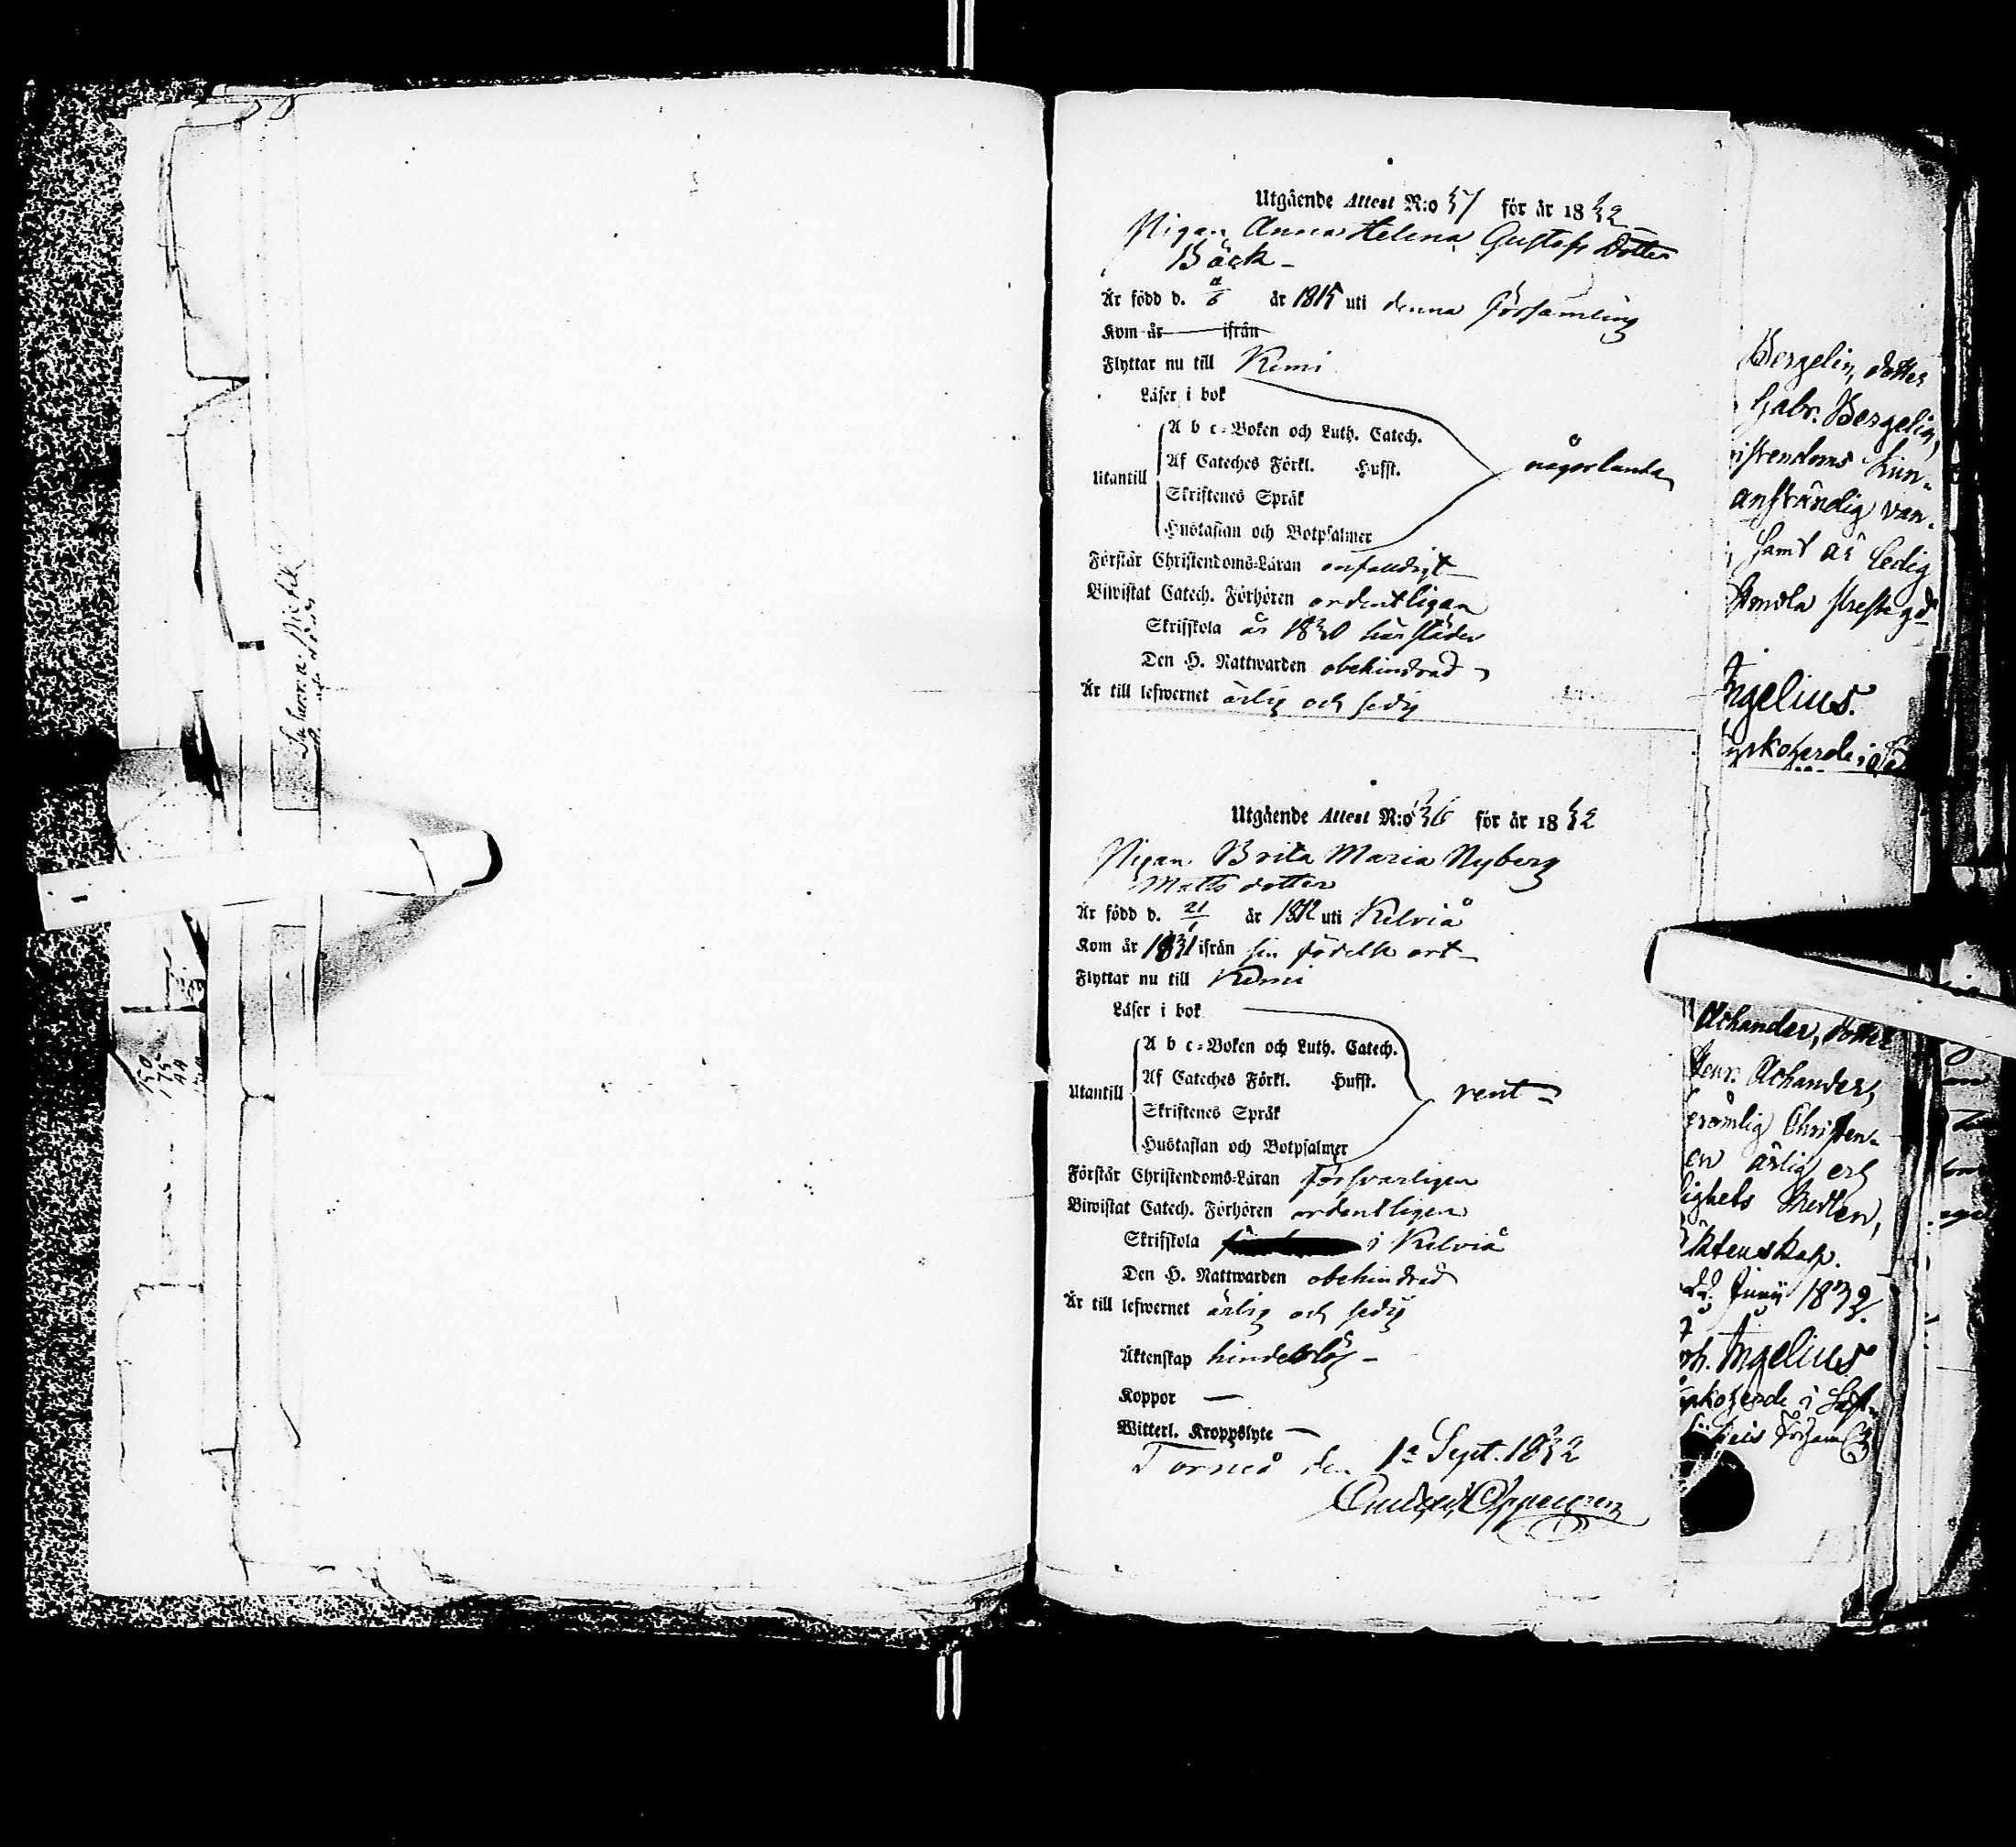 Utgående Attest N:o 37 för år 1832
Pigan Anna Helena Gustafs Dotter
Bäck -
Är född d. år 1815 uti denna Församling
Kom år ifrån
Flyttar nu till Kemi
Läser i bok
A b c-Boken och Luth. Catech.
Af Cateches Förkl. Husst.
någorlunda
Utantill
Skriftenes Språk
Hustaflan och Botpsalmer
Förstår Christendoms-Läran enfaldigt
Biwistat Catech. Förhören ordentligen
Skriftskola år 1830 härstädes
Den H. Nattwarden obehindrad
Är till lefwernet ärlig och sedig
Utgående Attest N:o 36 för år 1832
Pigan Brita Maria Nyberg
Matts dotter
Är född d. 21/1 år 1812 uti Kelviå
Kom år 1831 ifrån sin födelse ort
Flyttar nu till Kemi
Läser i bok
A b c-Boken och Luth. Catech.
Af Cateches Förkl. Husst.
Utantill rent
Skriftenes Språk
Hustaflan och Botpsalmer
Förstår Christendoms-Läran försvarligen
Biwistat Catech. Förhören ordentligen
Skriftskola i Kelviå
Den H. Nattwarden obehindrad
Är till lefwernet ärlig och sedig
Äktenskap hinderslös -
Koppor —
Witterl. Kroppslyte —
Torneå den 1a Sept. 1832
Bergelin, dotter
Gabr. Bergelin,
istendoms kun-
anständig van-
samt är ledig
ngelius.
yrkoherde i
Achander, dotter
Henr. Achander,
erömlig Christen-
en ärlig och
lighets
ktenskap.
Junii 1832
oh. Ingelius
yrkoherde i